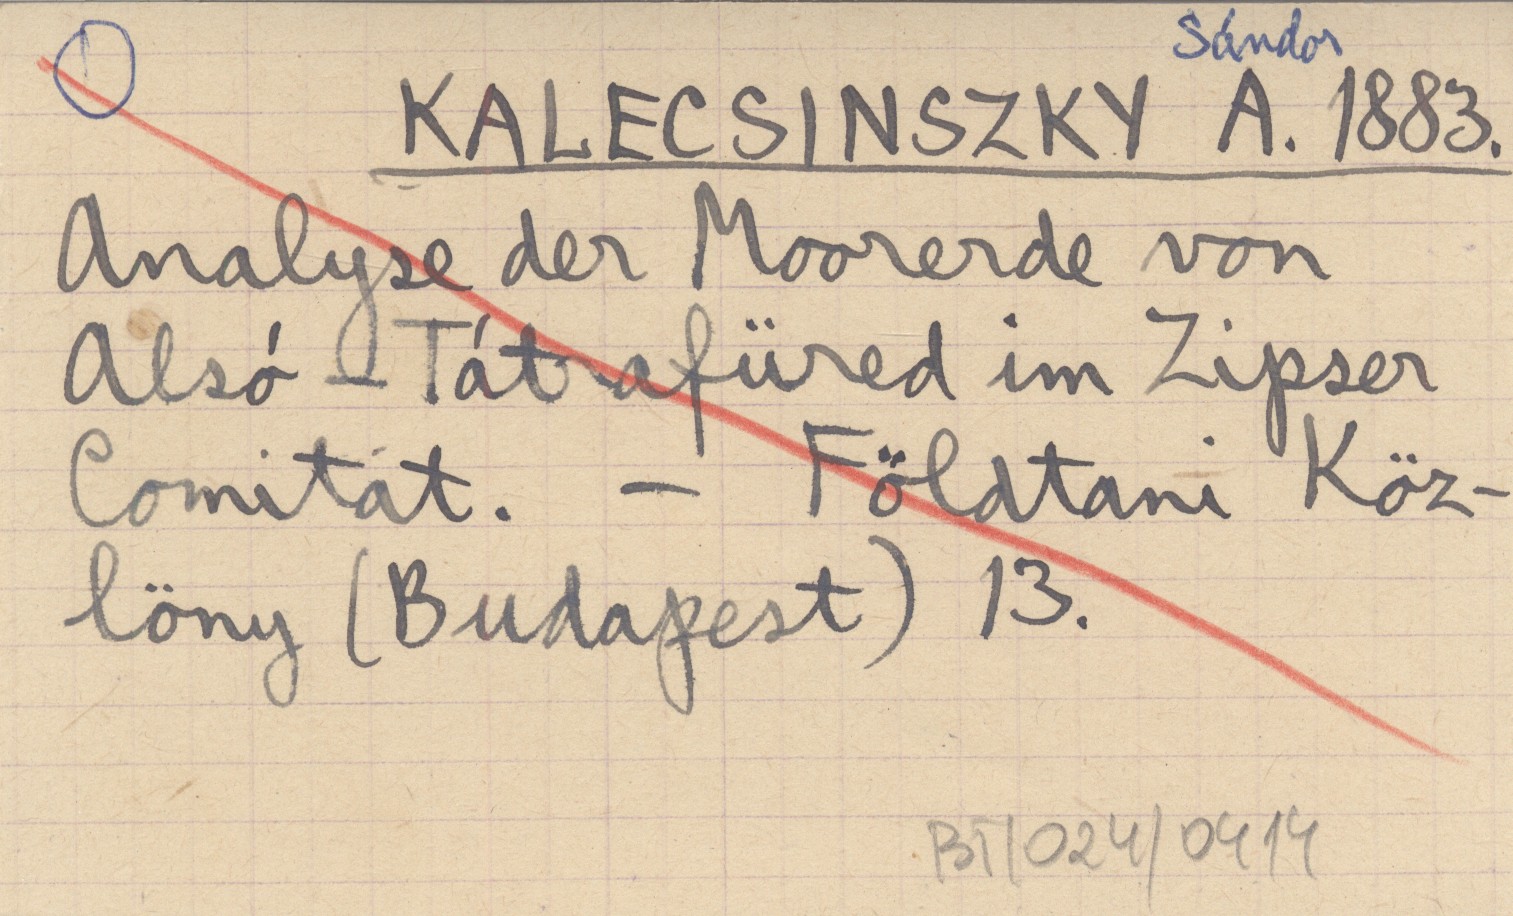 1
Sándor
KALECSINSZKY A. 1883.
Analyse der Moorerde von
Alsó-Tátrafüred im Zipser
Comitat. – Földtani Köz-
löny (Budapest) 13.
BT/024/0414